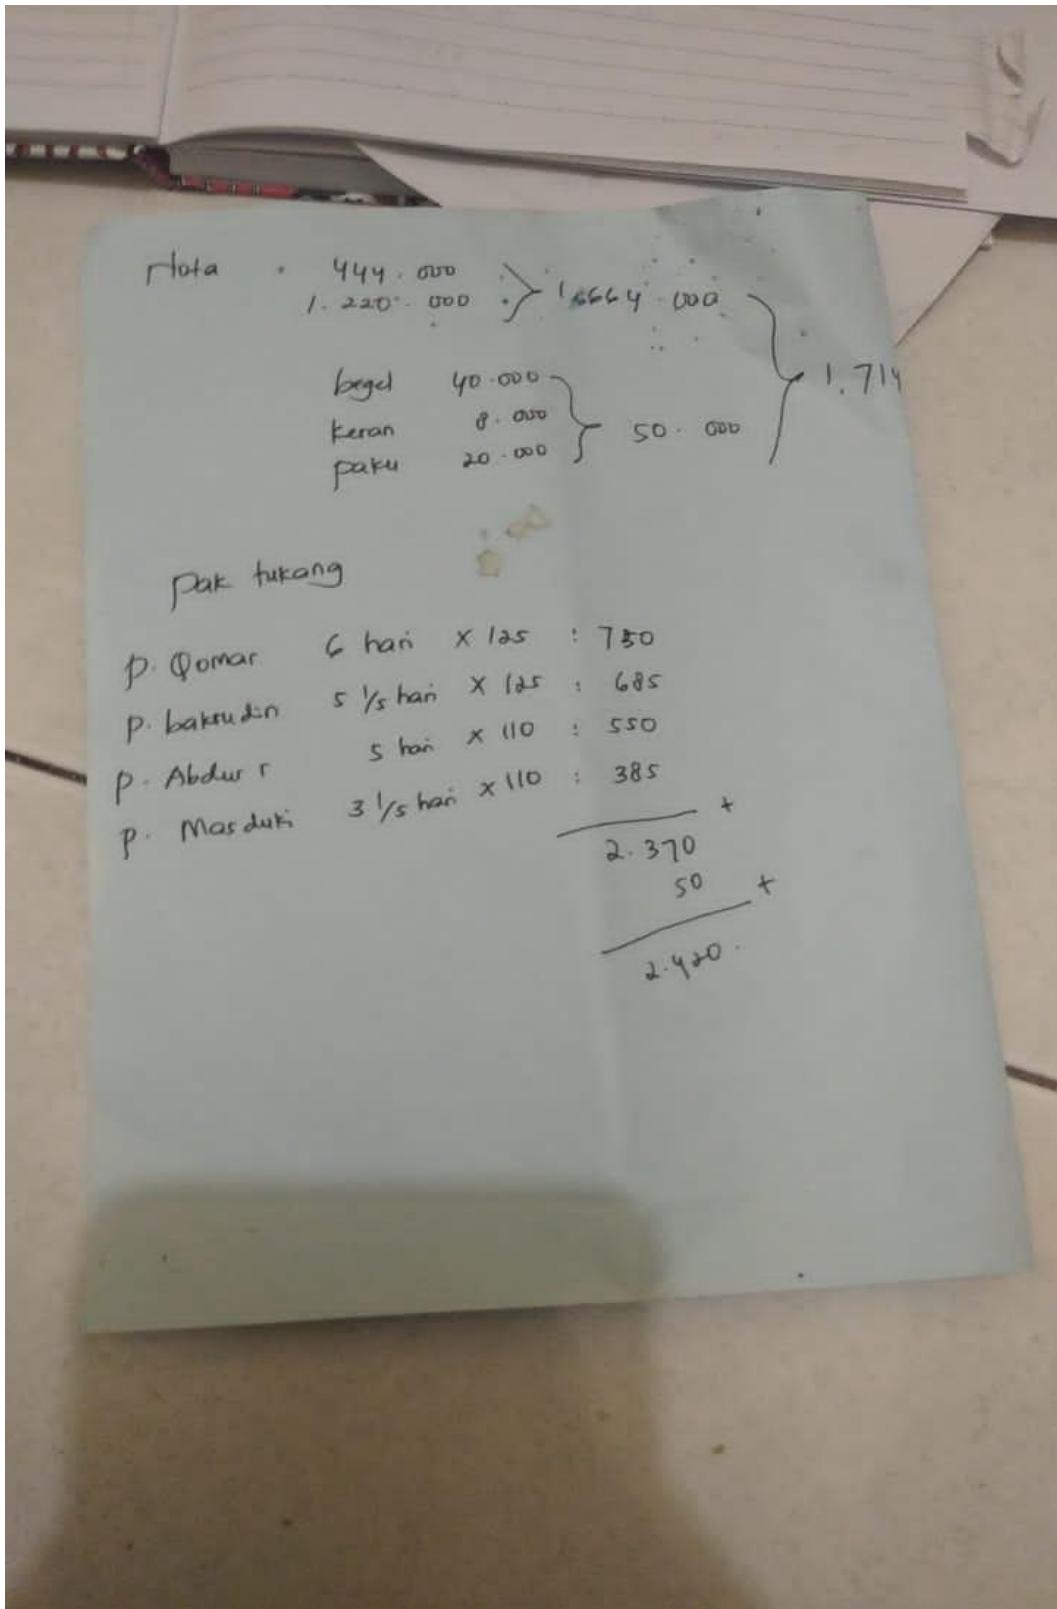 Nota . 444.000
1.220.000 1.664.000
1.714
begel 40.000
keran 8.000 50.000
paku 20.000
pak tukang
p. Qomar 6 hari x 125 : 750
p. baksudin 5 1/5 hari x 125 : 685
p. Abdur r 5 hari x 110 : 550
p. Masduki 3 1/5 hari x 110 : 385
+
2.370
50 +
2.420.